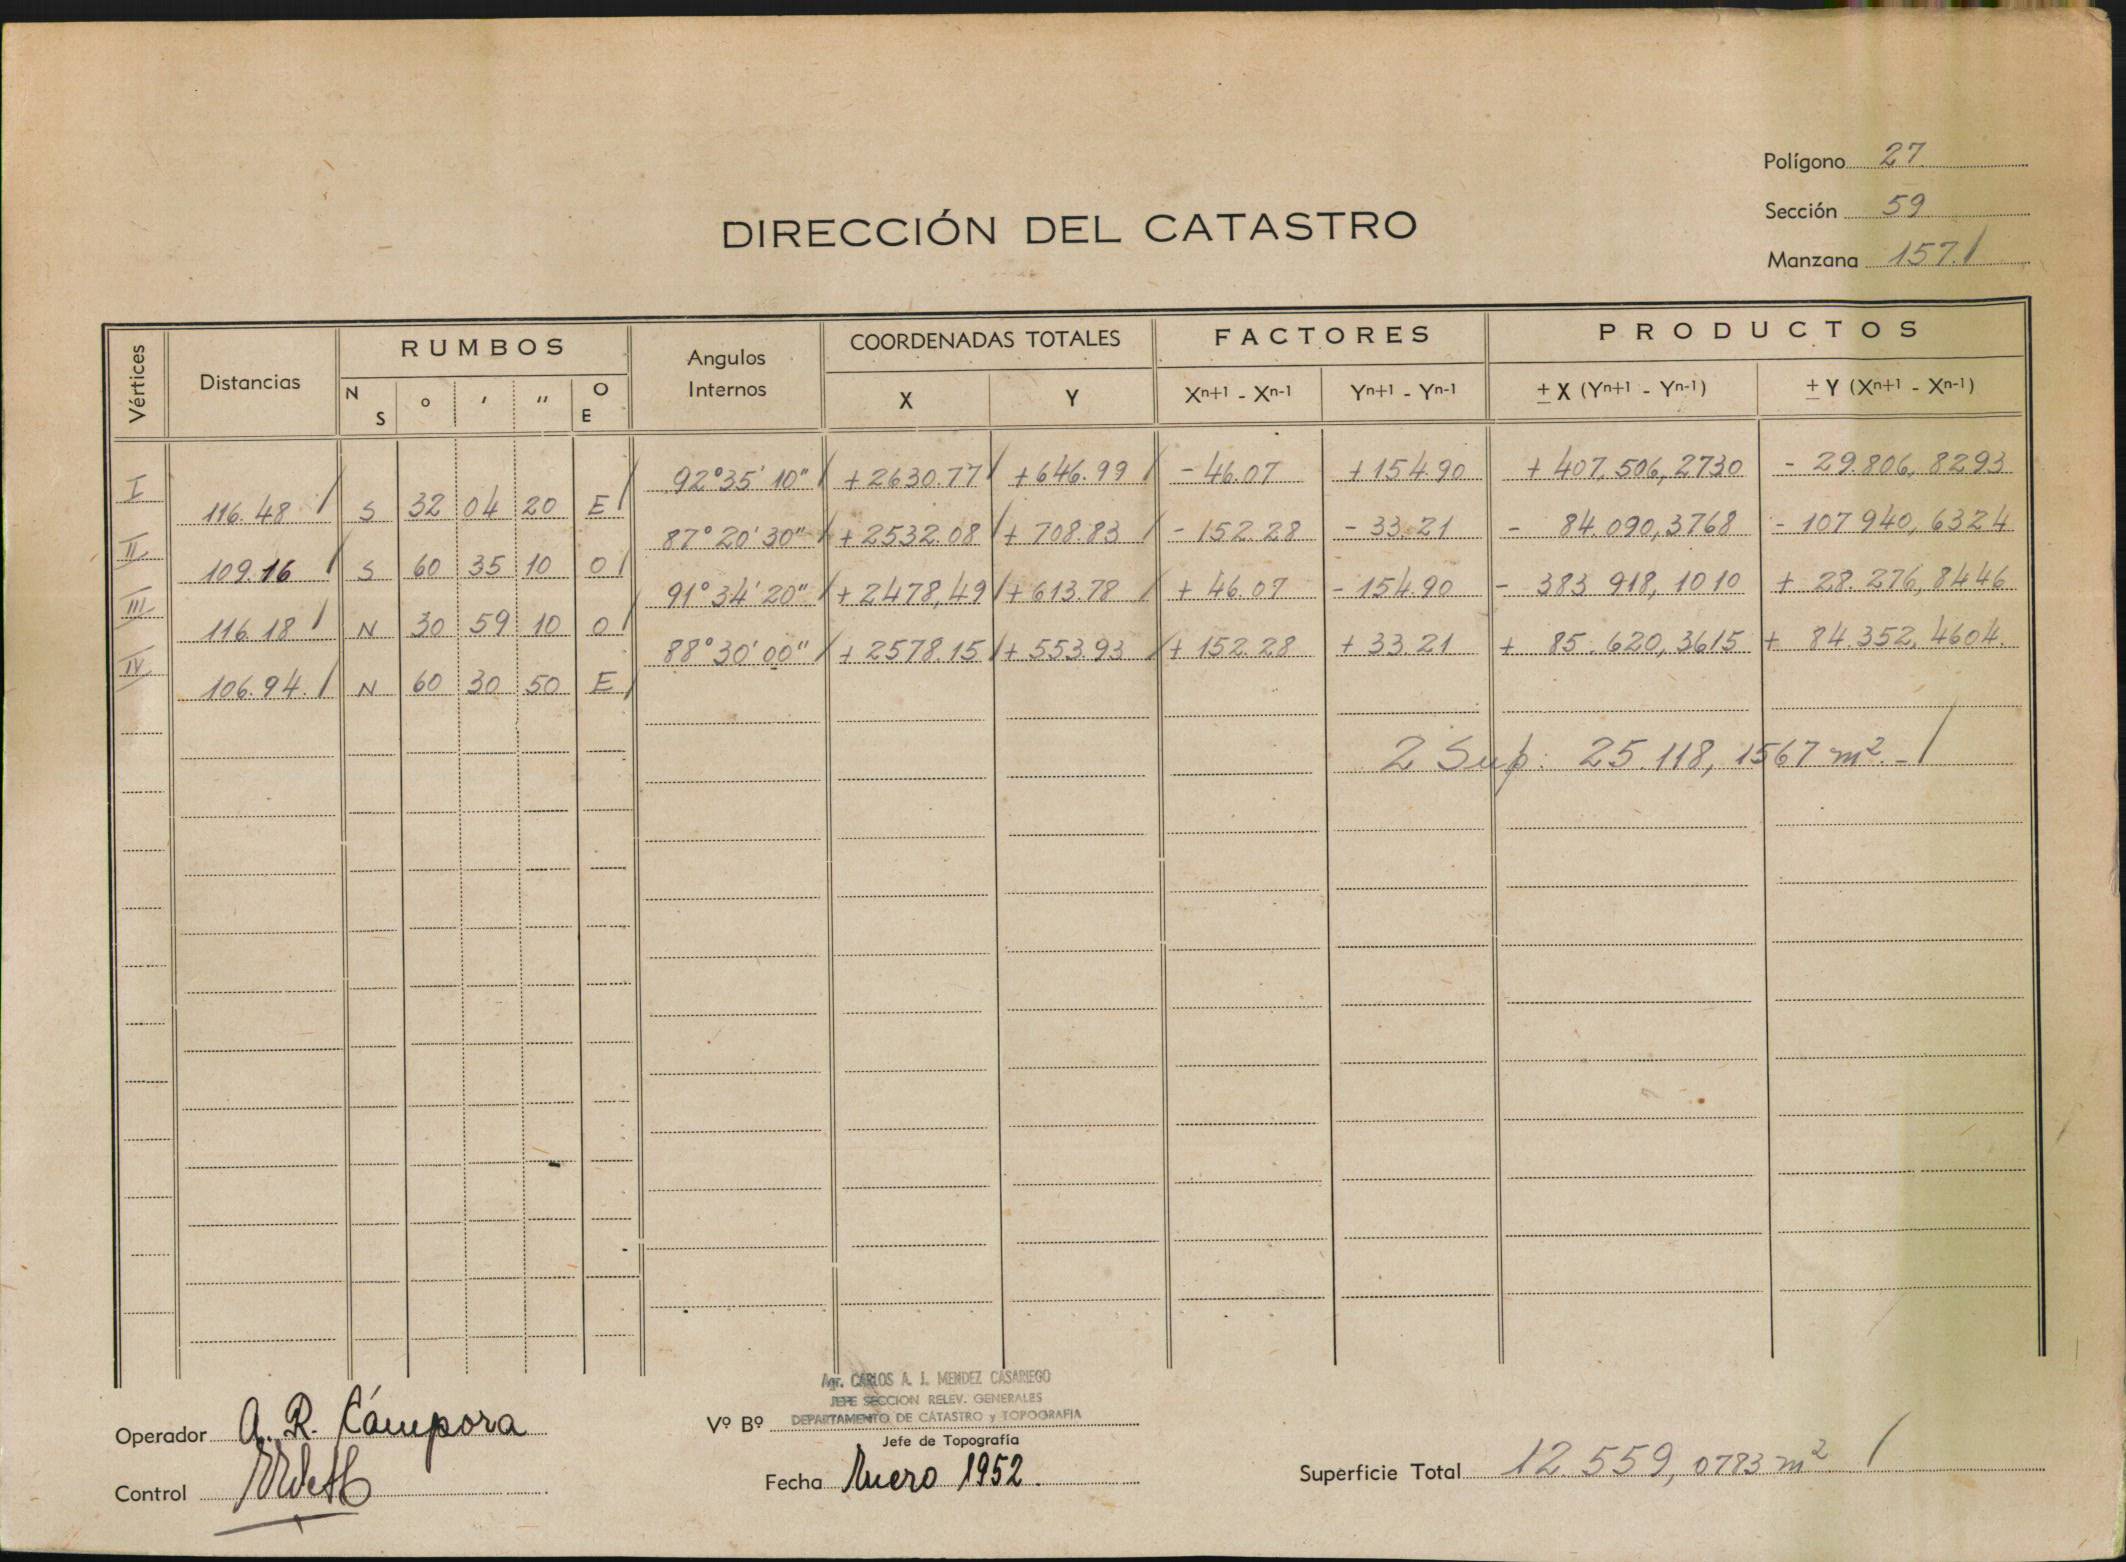 Polígono 27
Sección 59
Manzana 157./
DIRECCIÓN DEL CATASTRO
Vértices Distancias RUMBOS Angulos Internos COORDENADAS TOTALES FACTORES PRODUCTOS
N S ° ' " O E X Y Xn+1 - Xn-1 Yn+1 - Yn-1 ± X (Yn+1 - Yn-1) ± Y (Xn+1 - Xn-1)
I 92°35'10" / +2630.77 / +646.99 / -46.07 +154.90 + 407,506,2730 - 29.806,8293
116.48 / S 32 04 20 E /
II 87°20'30" / +2532.08 / + 708.83 / - 152.28 - 33.21 - 84.090,3768 - 107 940,6324
109.16 / S 60 35 10 O /
III 91°34'20" / +2478,49 / +613.78 / + 46.07 - 154.90 - 383 918,1010 + 28.276,8446
116.18 / N 30 59 10 O /
IV 88°30'00" / +2578.15 / + 553.93 / + 152.28 + 33.21 + 85.620,3615 + 84.352,4604.
106.94. / N 60 30 50 E /
2 Sup: 25.118,1567 m². - /
Agr. CARLOS A. J. MENDEZ CASARIEGO
JEFE SECCION RELEV. GENERALES
Vº Bº DEPARTAMENTO DE CATASTRO y TOPOGRAFIA
Jefe de Topografía
Operador A. R. Cámpora
Control
Fecha Enero 1952.
Superficie Total 12.559,0783 m² /